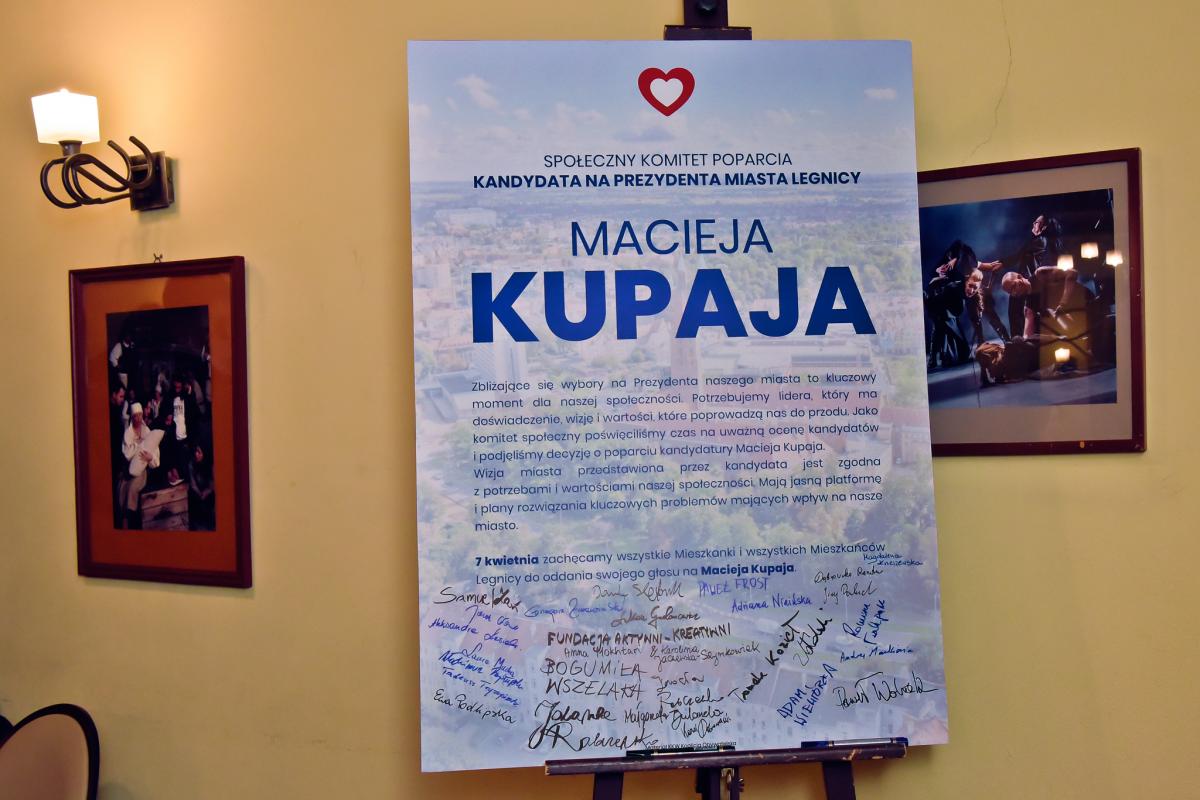 SPOŁECZNY KOMITET POPARCIA
KANDYDATA NA PREZYDENTA MIASTA LEGNICY
MACIEJA
KUPAJA
Zbliżające się wybory na Prezydenta naszego miasta to kluczowy
moment dla naszej społeczności. Potrzebujemy lidera, który ma
doświadczenie, wizję i wartości, które poprowadzą nas do przodu. Jako
komitet społeczny poświęciliśmy czas na uważną ocenę kandydatów
i podjęliśmy decyzję o poparciu kandydatury Macieja Kupaja.
Wizja miasta przedstawiona przez kandydata jest zgodna
z potrzebami i wartościami naszej społeczności. Mają jasną platformę
i plany rozwiązania kluczowych problemów mających wpływ na nasze
miasto.
7 kwietnia zachęcamy wszystkie Mieszkanki i wszystkich Mieszkańców
Legnicy do oddania swojego głosu na Macieja Kupaja.
Magdalena
PAWEŁ FROST
Samuel
Adriana
Aleksandra
FUNDACJA AKTYWNI-KREATYWNI
Anna Mokhtari & Karolina
BOGUMIŁA
WSZELAKA
Tadeusz
Ewa Podlipska
Jolanta
Małgorzata
ADAM
WIEWIÓRKA
Andrzej